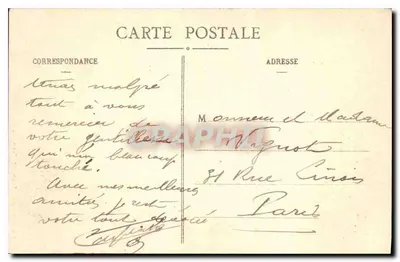 CARTE POSTALE
CORRESPONDANCE
ADRESSE
tenais malgré
tout à vous
remercier de
votre gentillesse
qui m'a beaucoup
touché.
Avec mes meilleures
amitiés je reste
votre tout dévoué
Monsieur et Madame
Vignot
31 Rue
Paris